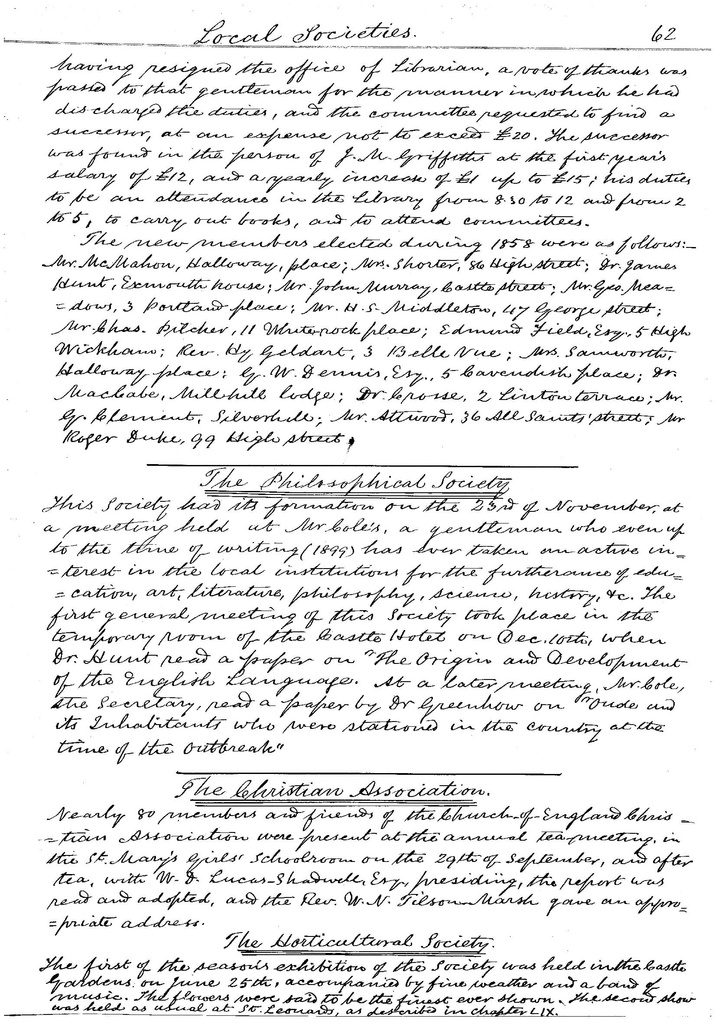 Local Societies. 62
having resigned the office of Librarian, a vote of thanks was
passed to that gentleman for the manner in which he had
discharged the duties, and the committee requested to find a
successor, at an expense not to exceed £20. The successor
was found in the person of J. M. Griffiths at the first year's
salary of £12, and a yearly increase of £1 up to £15; his duties
to be an attendance in the Library from 8.30 to 12 and from 2
to 5, to carry out books, and to attend committees.
The new members elected during 1858 were as follows:—
Mr. McMahon, Halloway, place; Mrs. Shorter, 86 High street; Dr. James
Hunt, Exmouth house; Mr. John Murray, Castle street; Mr. Geo. Mea=
=dows, 3 Portland place; Mr. H. S. Middleton, 47 George street;
Mr. Chas. Pitcher, 11 White rock place; Edmund Field, Esq., 5 High
Wickham; Rev. Hy Geldart, 3 Belle Vue; Mrs. Samworth,
Halloway place; G. W. Dennis, Esq., 5 Cavendish place; Dr.
MacCabe, Mill hill lodge; Dr. Crosse, 2 Linton terrace; Mr.
G. Clement, Silverhill; Mr. Attwood, 36 All Saints' street; Mr
Roger Duke, 99 High street,
The Philosophical Society
This Society had its formation on the 23rd of November, at
a meeting held at Mr. Cole's, a gentleman who even up
to the time of writing (1899) has ever taken an active in=
=terest in the local institutions for the furtherance of edu=
=cation, art, literature, philosophy, science, history, &c. The
first general meeting of this Society took place in the
temporary room of the Castle Hotel on Dec. 10th, when
Dr. Hunt read a paper on "The Origin and Development
of the English Language. At a later meeting, Mr. Cole,
the Secretary, read a paper by Dr Greenhow on "Oude and
its Inhabitants who were stationed in the country at the
time of the Outbreak"
The Christian Association.
Nearly 80 members and friends of the Church-of-England Chris=
=tian Association were present at the annual tea-meeting, in
the St. Mary's Girls' Schoolroom on the 29th of September, and after
tea, with W. D. Lucas-Shadwell, Esq., presiding, the report was
read and adopted, and the Rev. W. N. Tilson-Marsh gave an appro=
=priate address.
The Horticultural Society.
The first of the season's exhibition of the Society was held in the Castle
Gardens on June 25th, accompanied by fine weather and a band of
music. The flowers were said to be the finest ever shown. The second show
was held as usual at St. Leonards, as described in chapter LIX.